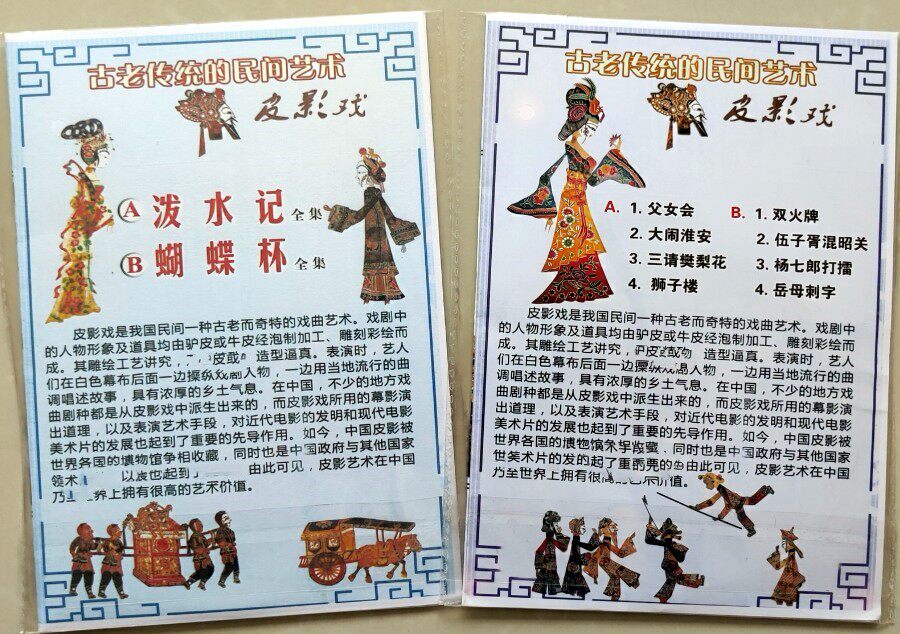 古老传统的民间艺术
皮影戏
A 泼水记 全集
B 蝴蝶杯 全集
皮影戏是我国民间一种古老而奇特的戏曲艺术。戏剧中
的人物形象及道具均由驴皮或牛皮经泡制加工、雕刻彩绘而
成。其雕绘工艺讲究，造型逼真。表演时，艺人
们在白色幕布后面一边操纵人物，一边用当地流行的曲
调唱述故事，具有浓厚的乡土气息。在中国，不少的地方戏
曲剧种都是从皮影戏中派生出来的，而皮影戏所用的幕影演
出道理，以及表演艺术手段，对近代电影的发明和现代电影
美术片的发展也起到了重要的先导作用。如今，中国皮影被
世界各国的博物馆争相收藏，同时也是中国政府与其他国家
也起到了 由此可见，皮影艺术在中国
乃至世界上拥有很高的艺术价值。
古老传统的民间艺术
皮影戏
A. 1. 父女会 B. 1. 双火牌
2. 大闹淮安 2. 伍子胥混昭关
3. 三请樊梨花 3. 杨七郎打擂
4. 狮子楼 4. 岳母刺字
皮影戏是我国民间一种古老而奇特的戏曲艺术。戏剧中
的人物形象及道具均由驴皮或牛皮经泡制加工、雕刻彩绘而
成。其雕绘工艺讲究，造型逼真。表演时，艺人
们在白色幕布后面一边操纵人物，一边用当地流行的曲
调唱述故事，具有浓厚的乡土气息。在中国，不少的地方戏
曲剧种都是从皮影戏中派生出来的，而皮影戏所用的幕影演
出道理，以及表演艺术手段，对近代电影的发明和现代电影
美术片的发展也起到了重要的先导作用。如今，中国皮影被
世界各国的博物馆，同时也是中国政府与其他国家
由此可见，皮影艺术在中国
乃至世界上拥有很高的艺术价值。